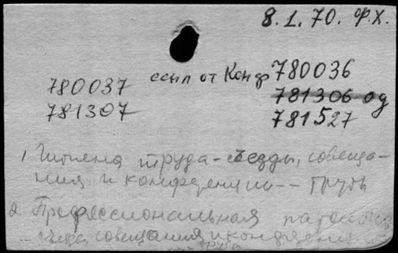 8.1.70. ФХ.
780037 ссыл от Конф 780036
781307 781306 од
781527
1 Гигиена труда - съезды, совеща-
ния и конференции -- Грузь
2 Профессиональная патол
съезды совещания и конференц
труда